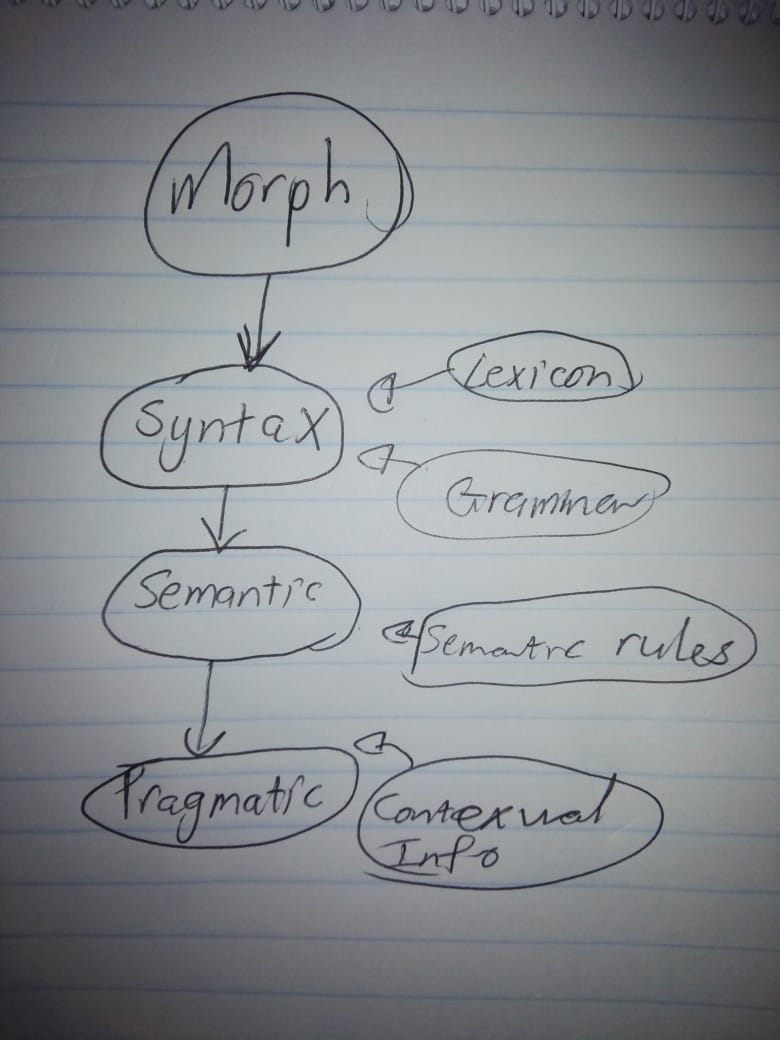 Morph
Lexicon
Syntax
Grammer
Semantic
Semantic rules
Pragmatic
Contexual
Info